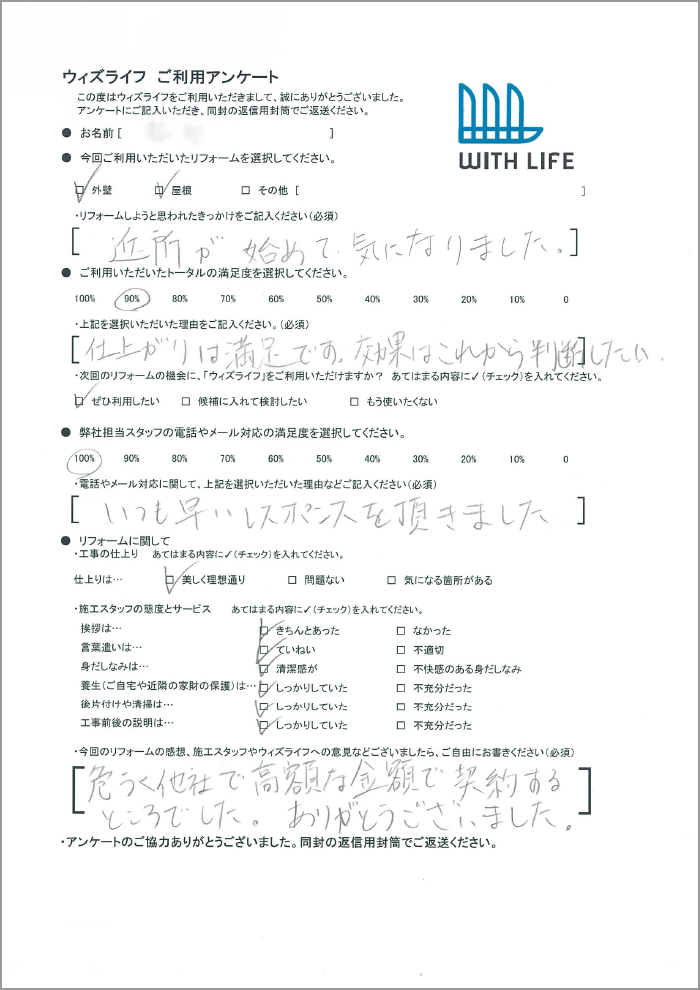 ウィズライフ ご利用アンケート
この度はウィズライフをご利用いただきまして、誠にありがとうございました。
アンケートにご記入いただき、同封の返信用封筒でご返送ください。
WITH LIFE
● お名前 [ ]
● 今回ご利用いただいたリフォームを選択してください。
☑ 外壁 ☑ 屋根 □ その他 [ ]
・リフォームしようと思われたきっかけをご記入ください(必須)
[ 近所が始めて気になりました。]
● ご利用いただいたトータルの満足度を選択してください。
100% 90% 80% 70% 60% 50% 40% 30% 20% 10% 0
・上記を選択いただいた理由をご記入ください。(必須)
[ 仕上がりは満足です。効果はこれから判断したい。]
・次回のリフォームの機会に、「ウィズライフ」をご利用いただけますか? あてはまる内容に✓(チェック)を入れてください。
☑ ぜひ利用したい □ 候補に入れて検討したい □ もう使いたくない
● 弊社担当スタッフの電話やメール対応の満足度を選択してください。
100% 90% 80% 70% 60% 50% 40% 30% 20% 10% 0
・電話やメール対応に関して、上記を選択いただいた理由などご記入ください(必須)
[ いつも早いレスポンスを頂きました ]
● リフォームに関して
・工事の仕上り あてはまる内容に✓(チェック)を入れてください。
仕上りは… ☑ 美しく理想通り □ 問題ない □ 気になる箇所がある
・施工スタッフの態度とサービス あてはまる内容に✓(チェック)を入れてください。
挨拶は… ☑ きちんとあった □ なかった
言葉遣いは… ☑ ていねい □ 不適切
身だしなみは… ☑ 清潔感が □ 不快感のある身だしなみ
養生(ご自宅や近隣の家財の保護)は… ☑ しっかりしていた □ 不充分だった
後片付けや清掃は… ☑ しっかりしていた □ 不充分だった
工事前後の説明は… ☑ しっかりしていた □ 不充分だった
・今回のリフォームの感想、施工スタッフやウィズライフへの意見などございましたら、ご自由にお書きください(必須)
[ 危うく他社で高額な金額で契約する
ところでした。ありがとうございました。]
・アンケートのご協力ありがとうございました。同封の返信用封筒でご返送ください。